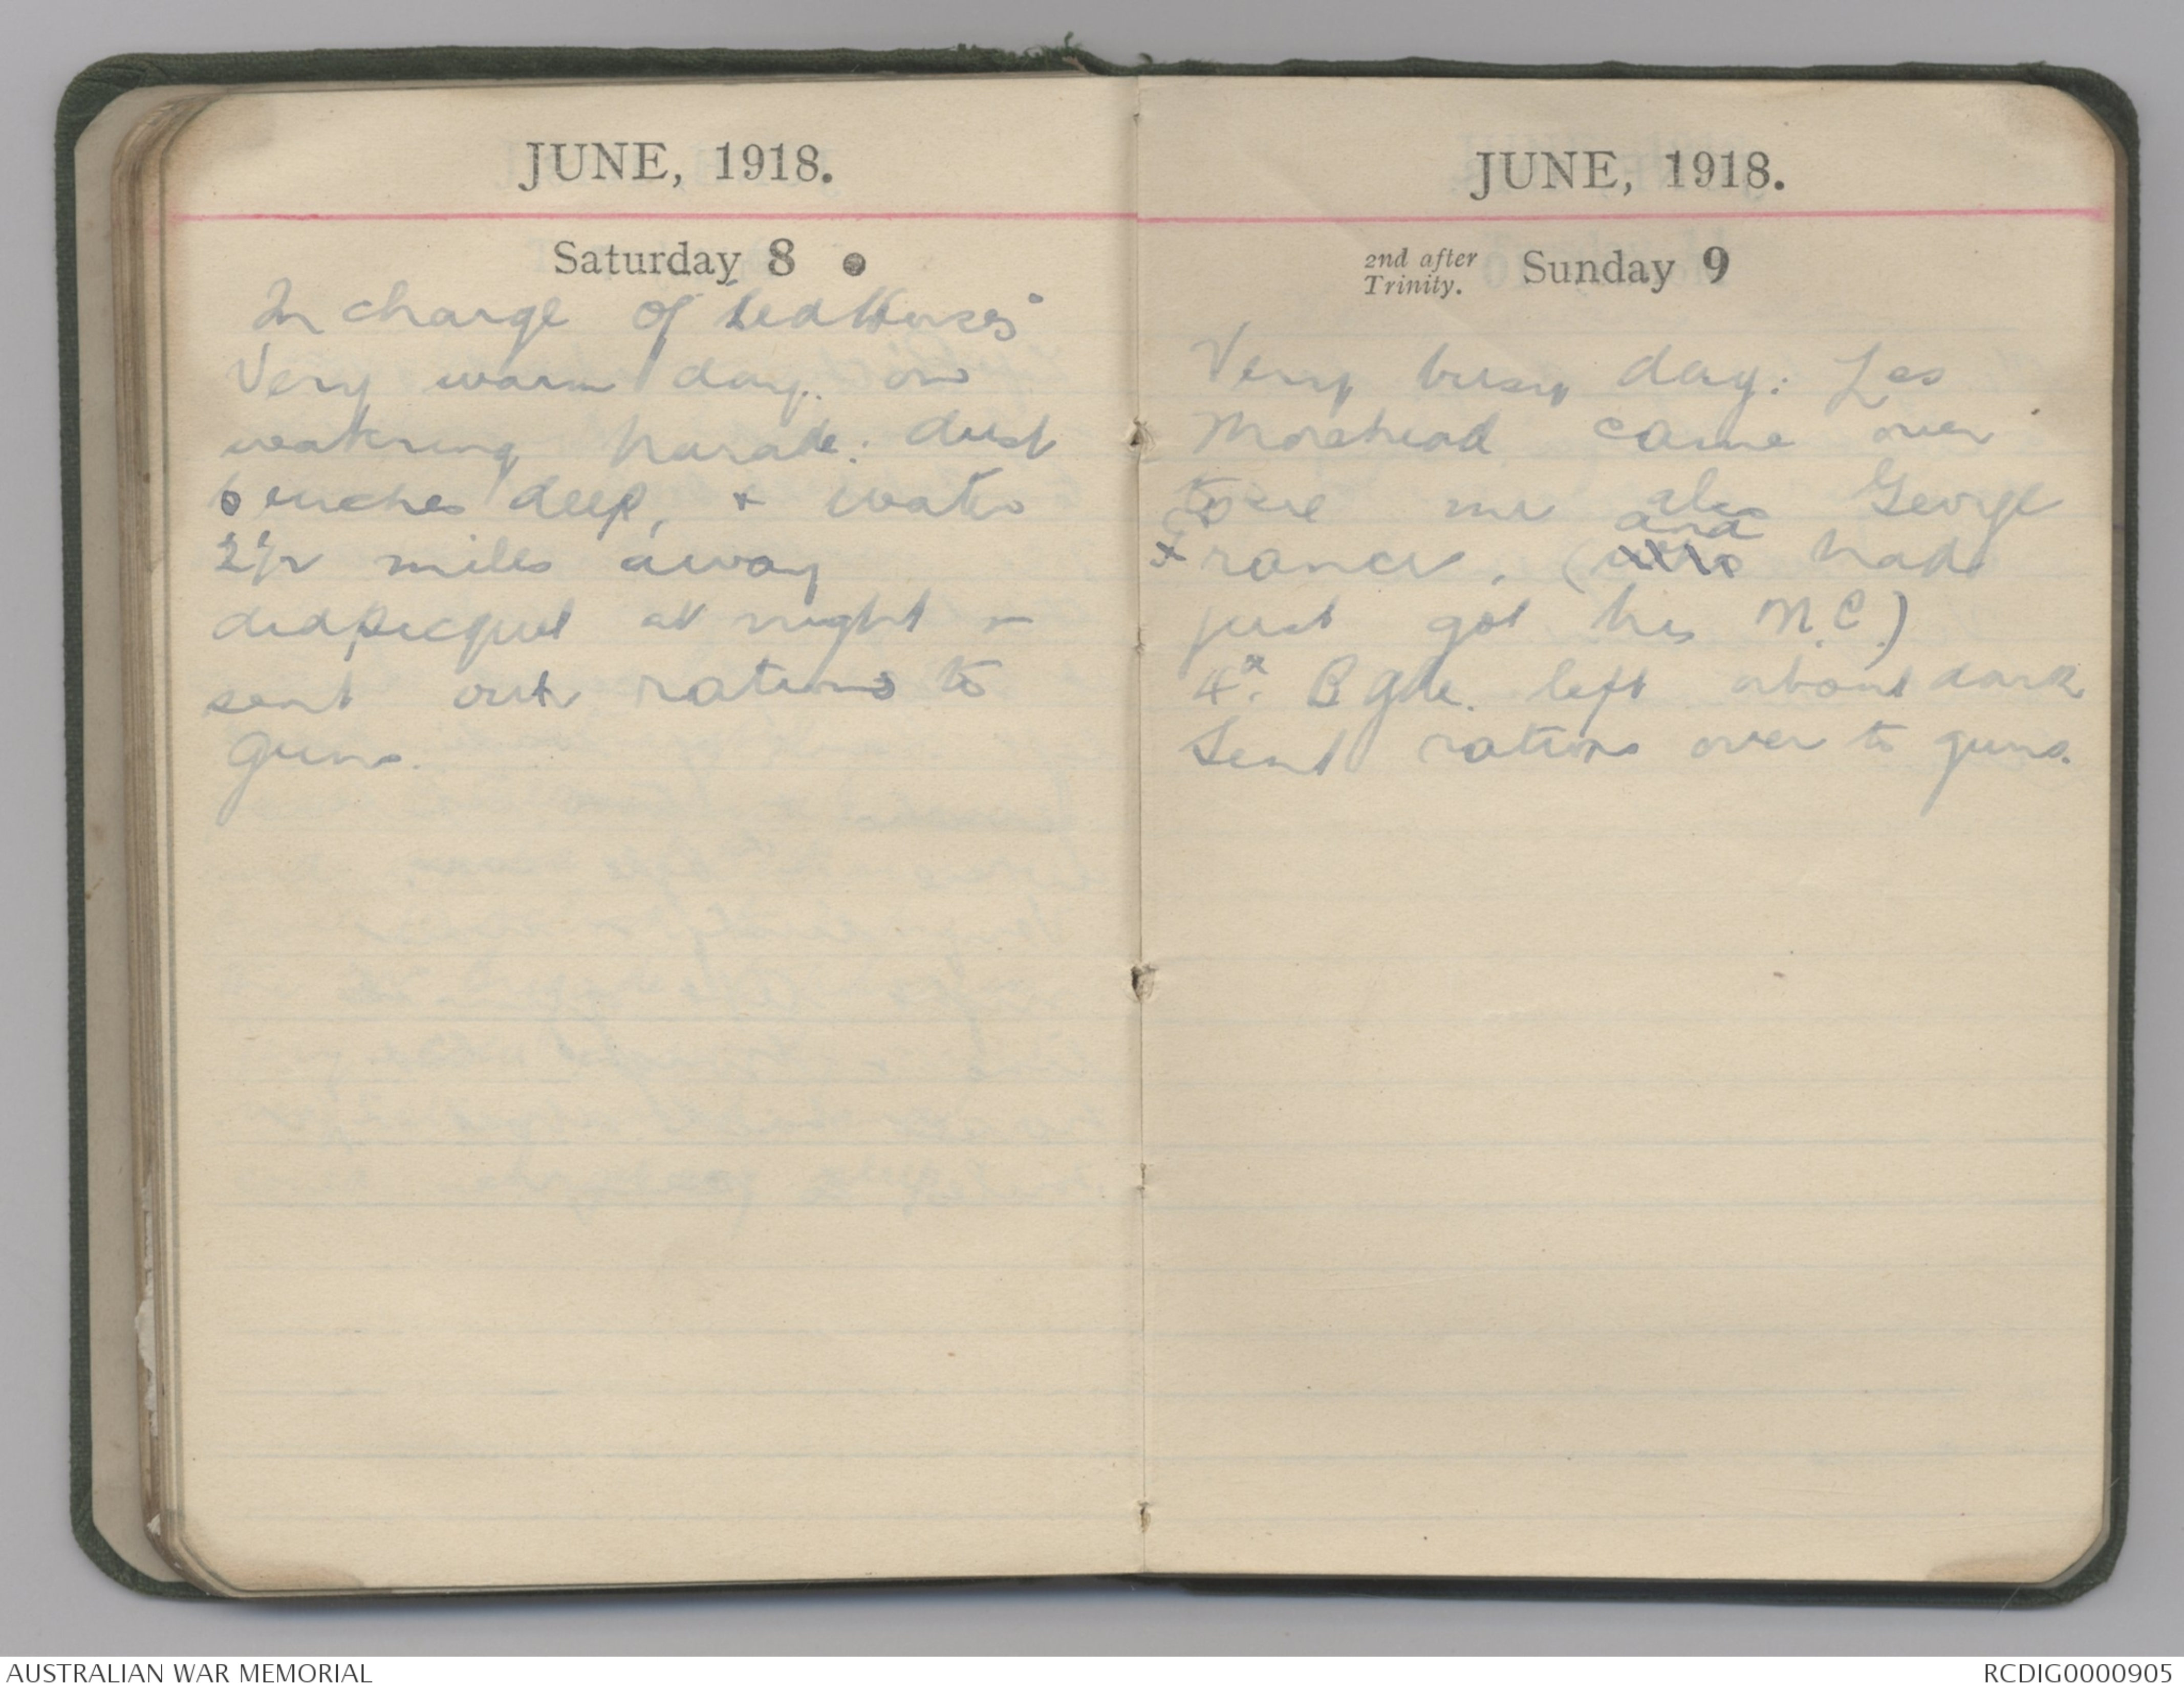 JUNE, 1918.
Saturday 8
In charge of led Horses
Very warm day. on
watering parade. dust
6 inches deep, & water
2½ miles away
did picquet at night &
sent out rations to
guns.
JUNE, 1918.
2nd after Trinity. Sunday 9
Very busy day: Les
Morehead came over
to see me also George
France, (and had
just got his M.C.)
4th. Bgde. left about dark
Sent rations over to guns.
AUSTRALIAN WAR MEMORIAL
RCDIG0000905